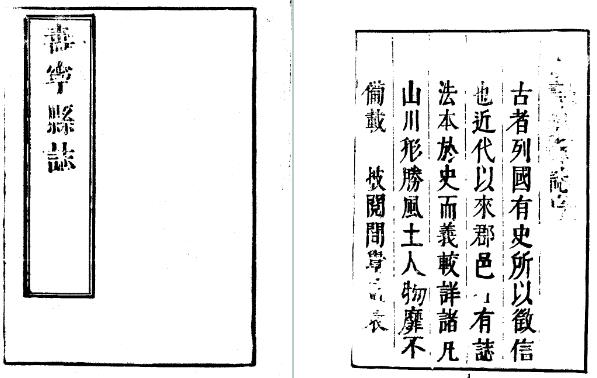 壽寧縣誌
古者列國有史所以徵信
也近代以來郡邑有誌
法本於史而義較詳諸凡
山川形勝風土人物靡不
備載 披閱間覺